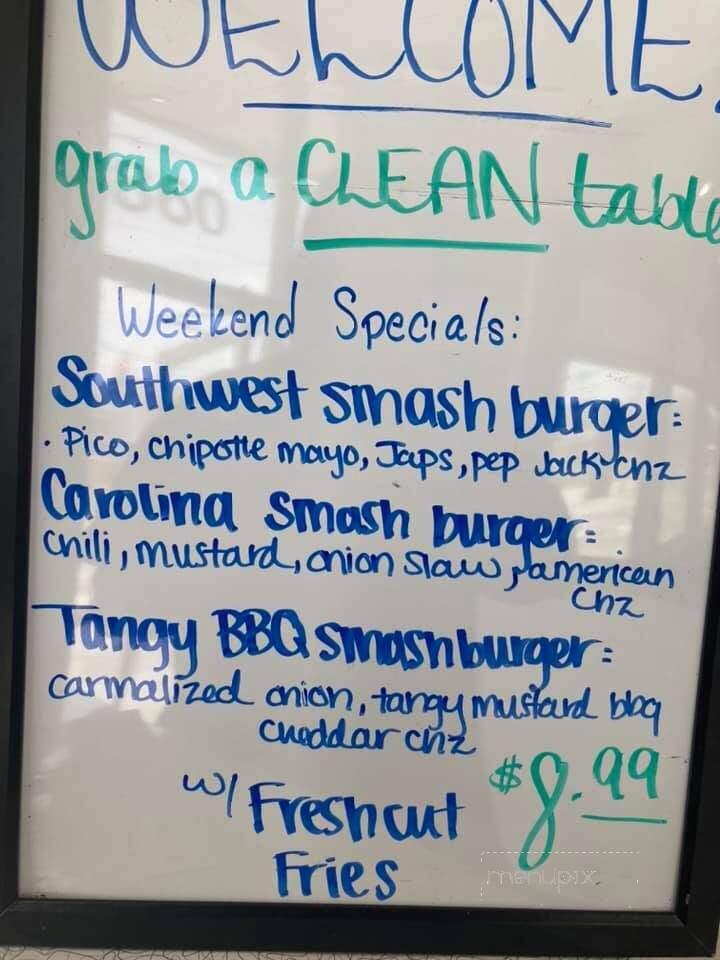 WELCOME!
grab a CLEAN table
Weekend Specials:
Southwest smash burger:
. Pico, chipotle mayo, Japs, pep Jack chz
Carolina smash burger:
chili, mustard, onion slaw, american
chz
Tangy BBQ smashburger:
carmalized onion, tangy mustard bbq
cheddar chz
$8.99
w/ Fresh cut
Fries
menupix